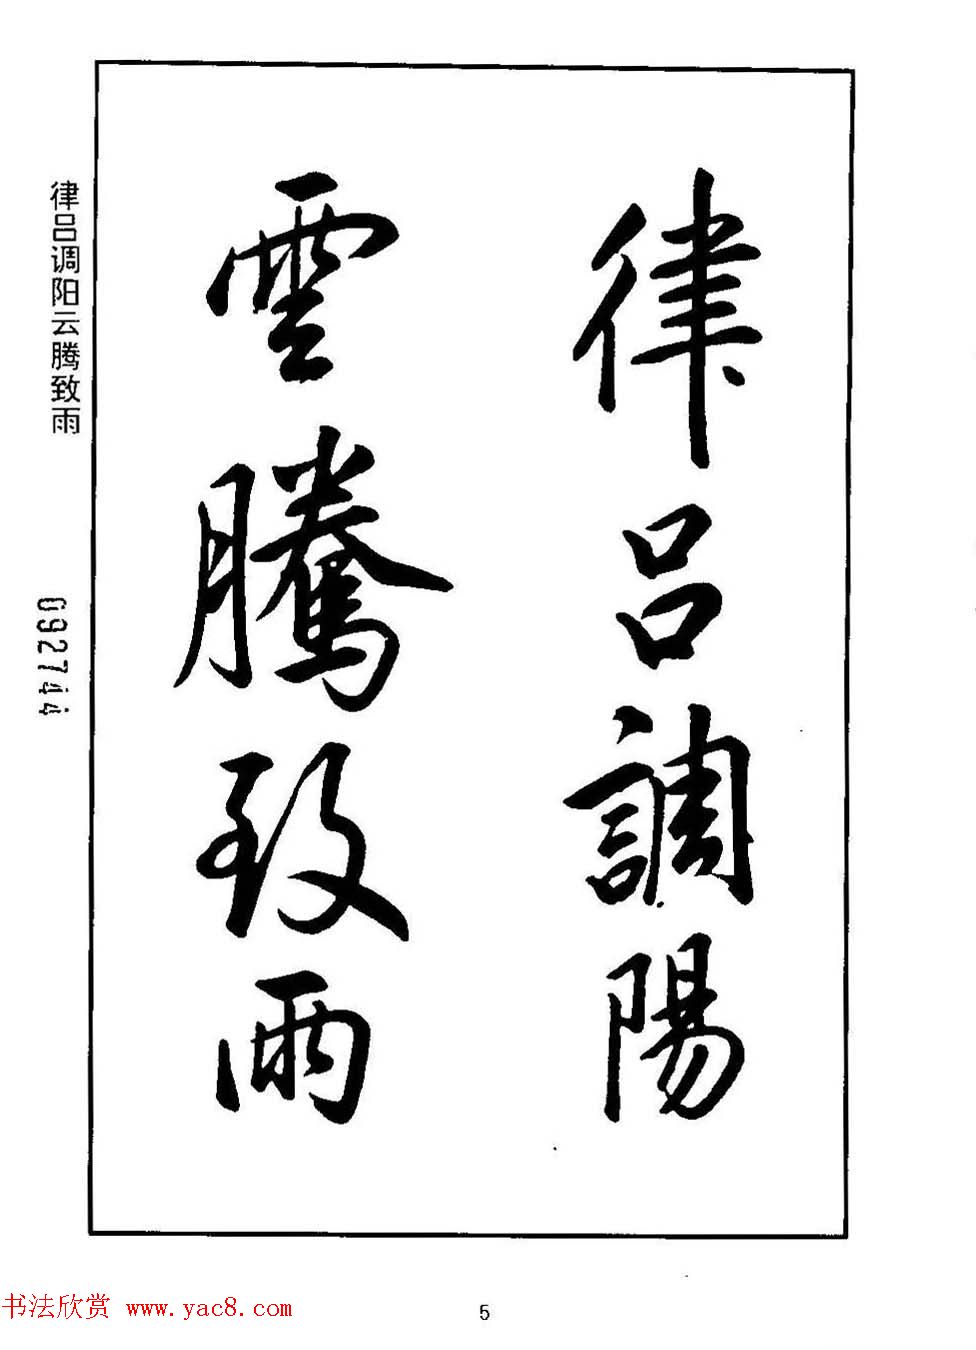 律呂調陽
雲騰致雨
律吕调阳云腾致雨
092744
书法欣赏 www.yac8.com
5